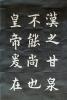 漢之甘泉
不能尚也
皇帝爰在